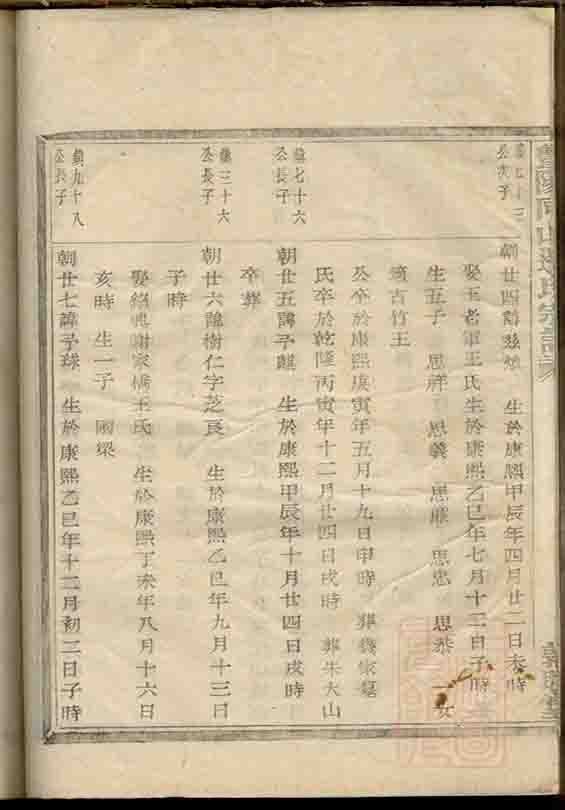 公次子
朝廿四諱 生於康熙甲辰年四月廿二日未時
娶王老軍王氏生於康熙乙巳年七月十二日子時
生五子 思祥 思義 思 思忠 思恭 一女
適古竹王
公卒於康熙庚寅年五月十九日申時 葬
氏卒於乾隆丙寅年十二月廿四日戌時 葬朱大山
鎮七十六
公長子
朝廿五諱予麒 生於康熙甲辰年十月廿四日戌時
卒葬
鎮三十六
公長子
朝廿六諱樹仁字芝良 生於康熙乙巳年九月十三日
子時
娶 謝家橋王氏 生於康熙丁未年八月十六日
亥時 生一子 國梁
鎮九十八
公長子
朝廿七諱予球 生於康熙乙巳年十二月初三日子時